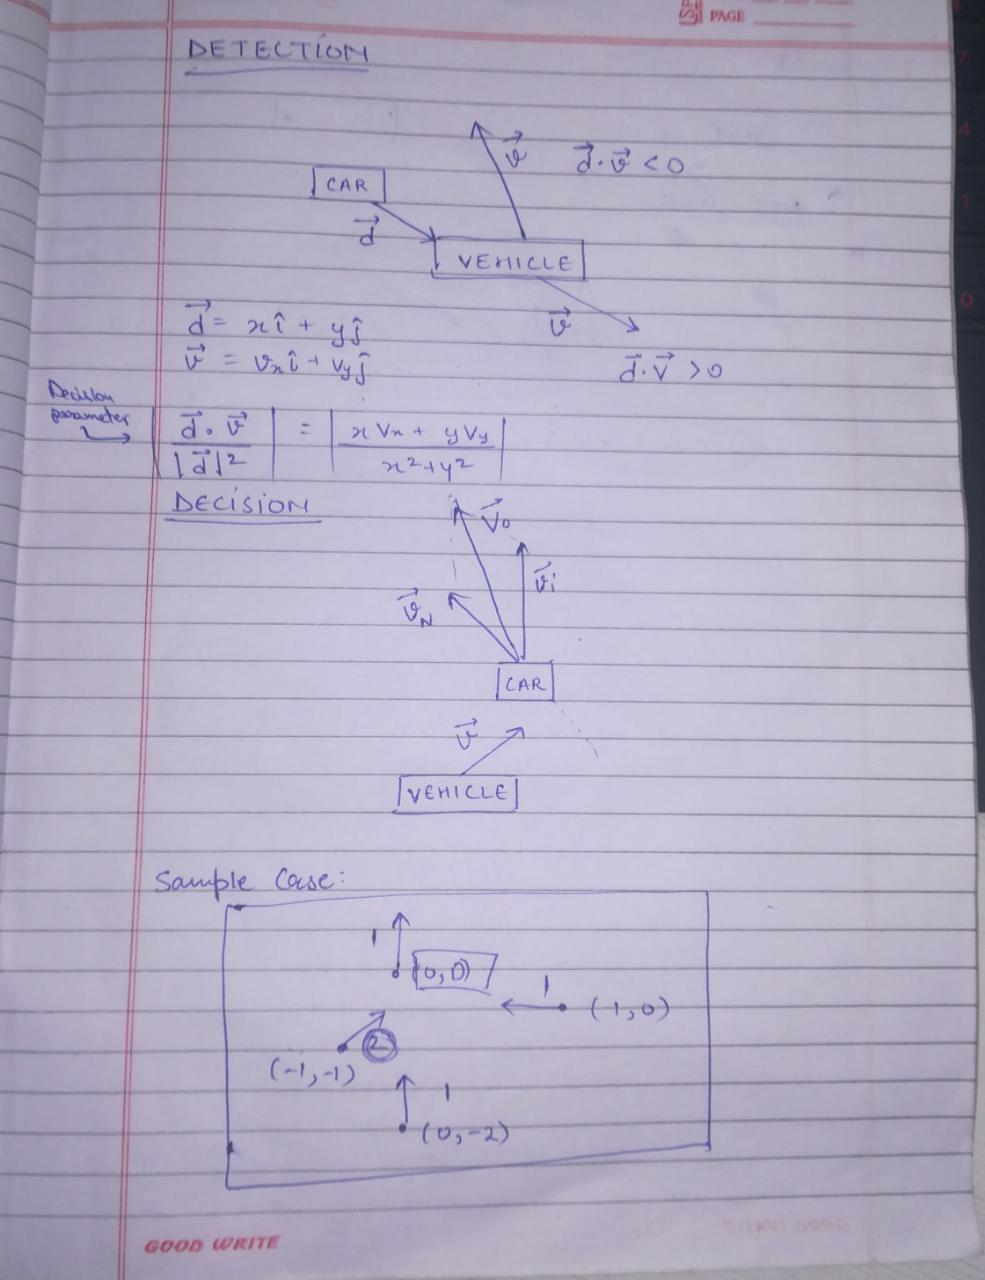 PAGE
DETECTION
v⃗
d⃗ · v⃗ < 0
CAR
d⃗
VEHICLE
v⃗
d⃗ · v⃗ > 0
d⃗ = xî + yĵ
v⃗ = vxî + vyĵ
Decision
parameter
|d⃗ · v⃗ / |d⃗|²| = |xVx + yVy / x² + y²|
DECISION
V⃗o
v⃗i
v⃗N
CAR
v⃗
VEHICLE
Sample Case:
1
(0,0)
1
(1,0)
2
(-1,-1)
1
(0,-2)
GOOD WRITE